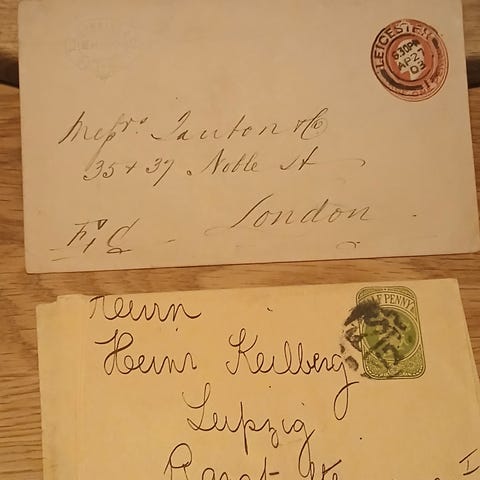 LEICESTER
6 30PM
AP 27
03
Messrs. Tauton & Co
35 & 37 Noble St
London
HALF PENNY
Herrn
Heinr Keilberg
Leipzig